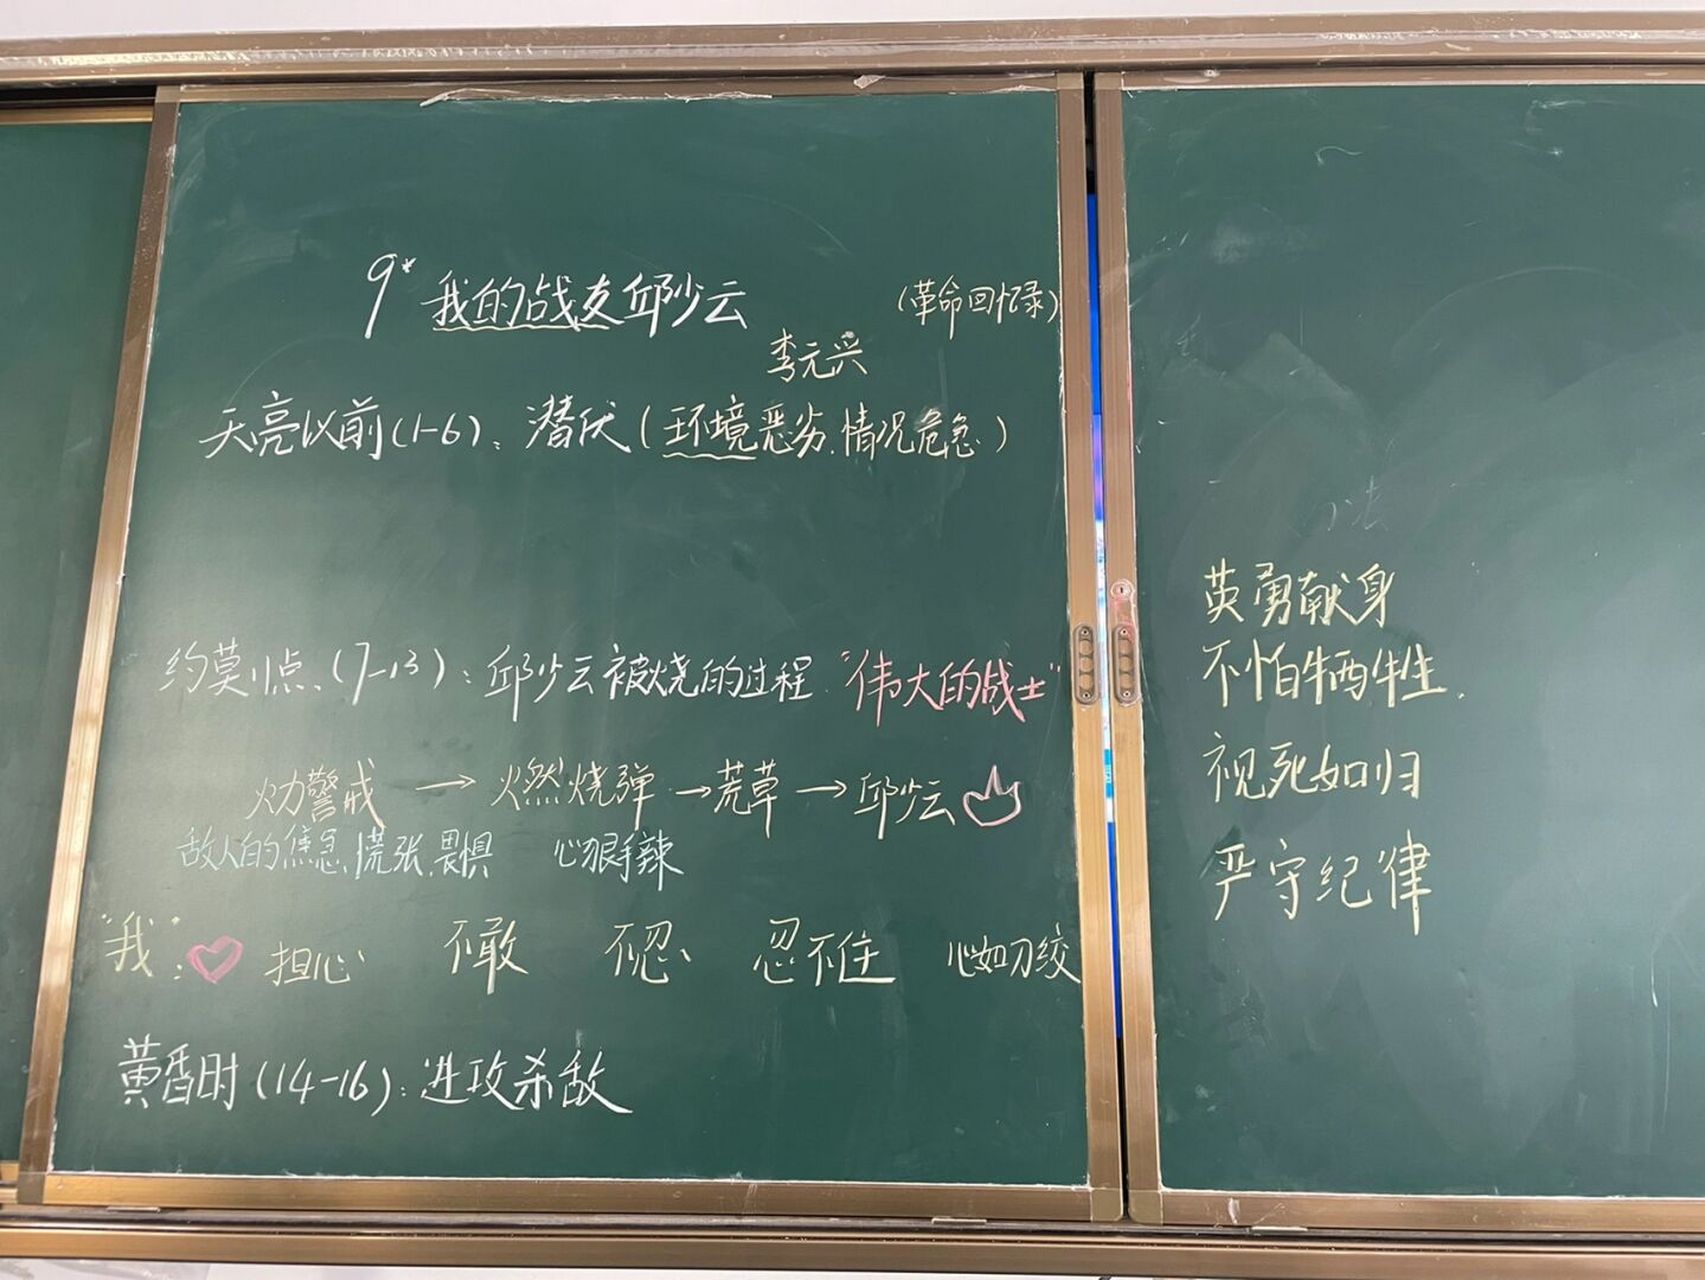 9* 我的战友邱少云
(革命回忆录)
李元兴
天亮以前(1-6): 潜伏(环境恶劣.情况危急)
约莫1点.(7-13): 邱少云被烧的过程 "伟大的战士"
火力警戒 → 燃烧弹 → 荒草 → 邱少云
敌人的焦急.慌张.畏惧 心狠手辣
"我": 担心 不敢 不忍 忍不住 心如刀绞
黄昏时(14-16): 进攻杀敌
英勇献身
不怕牺牲.
视死如归
严守纪律